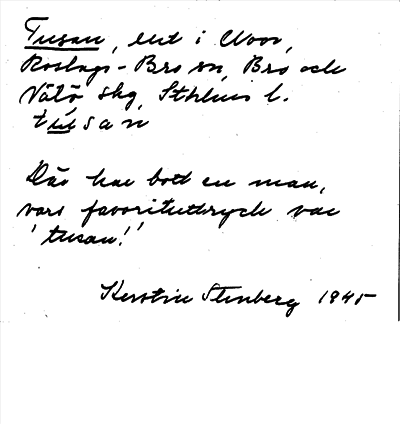 Tusan, ut i Noor,
Roslags-Bro sn, Bro och
Vätö skg, Sthlms l.
tusan
Där har bott en man,
vars favorituttryck var
'tusan!'
Kerstin Stenberg 1945